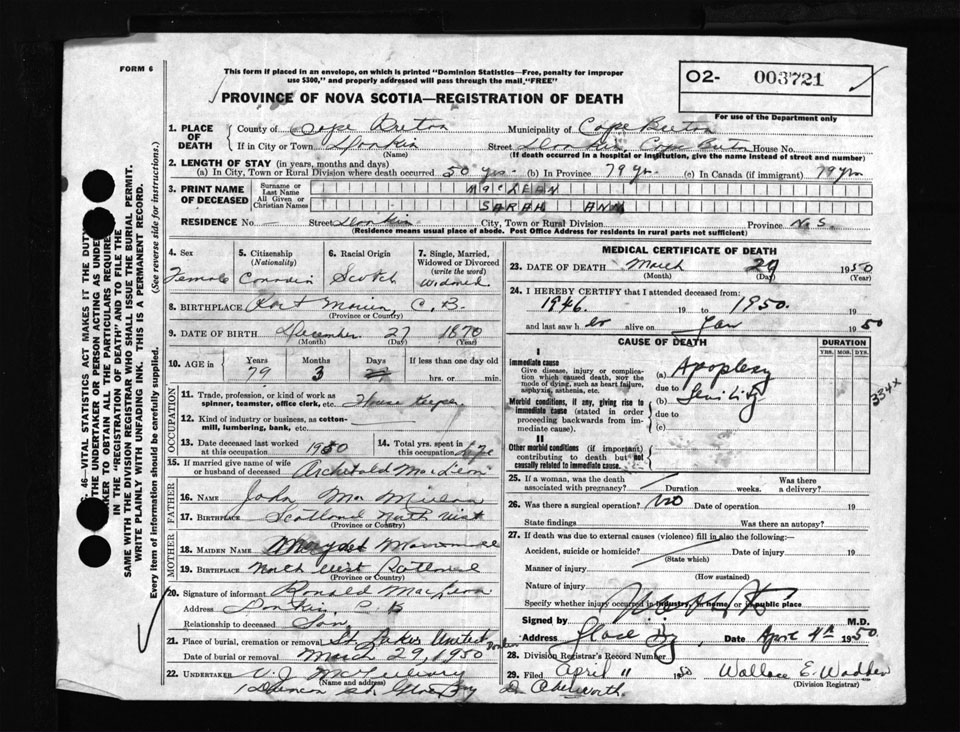 FORM 6
This form if placed in an envelope, on which is printed "Dominion Statistics—Free, penalty for improper
use $300," and properly addressed will pass through the mail "FREE"
02- 003721
For use of the Department only
PROVINCE OF NOVA SCOTIA—REGISTRATION OF DEATH
1. PLACE OF DEATH County of Cape Breton Municipality of Cape Breton
If in City or Town Donkin (Name) Street Donkin, Cape Breton House No.
(If death occurred in a hospital or institution, give the name instead of street and number)
2. LENGTH OF STAY (in years, months and days)
(a) In City, Town or Rural Division where death occurred 50 yrs. (b) In Province 79 yrs. (c) In Canada (if immigrant) 79 yrs
3. PRINT NAME OF DECEASED Surname or Last Name MACLEAN
All Given or Christian Names SARAH ANN
RESIDENCE No. Street Donkin City, Town or Rural Division Province N.S.
(Residence means usual place of abode. Post Office Address for residents in rural parts not sufficient)
4. Sex Female
5. Citizenship (Nationality) Canadian
6. Racial Origin Scotch
7. Single, Married, Widowed or Divorced (write the word) Widowed
8. BIRTHPLACE Port Morien C.B.
(Province or Country)
9. DATE OF BIRTH December 27 1870
(Month) (Day) (Year)
10. AGE in Years 79 Months 3 Days If less than one day old hrs. or min.
OCCUPATION
11. Trade, profession, or kind of work as spinner, teamster, office clerk, etc. House Keeper
12. Kind of industry or business, as cotton-mill, lumbering, bank, etc.
13. Date deceased last worked at this occupation 1950
14. Total yrs. spent in this occupation life
15. If married give name of wife or husband of deceased Archibald MacLean
FATHER
16. NAME John Mac
17. BIRTHPLACE Scotland North Uist
(Province or Country)
MOTHER
18. MAIDEN NAME
19. BIRTHPLACE North Uist Scotland
(Province or Country)
20. Signature of informant Ronald MacLean
Address Donkin, C B
Relationship to deceased Son
21. Place of burial, cremation or removal St. Lukes United Donkin
Date of burial or removal March 29, 1950
22. UNDERTAKER V. J.
(Name and address)
St. Glace Bay
MEDICAL CERTIFICATE OF DEATH
23. DATE OF DEATH March 29 1950
(Month) (Day) (Year)
24. I HEREBY CERTIFY that I attended deceased from:
1946. 19 to 1950. 19
and last saw her alive on Jan 1950
CAUSE OF DEATH
DURATION
YRS. MOS. DYS.
I
Immediate cause
Give disease, injury or complication which caused death, not the mode of dying, such as heart failure, asphyxia, asthenia, etc.
(a) Apoplexy
due to
Morbid conditions, if any, giving rise to immediate cause (stated in order proceeding backwards from immediate cause).
(b) Senility
due to
(c)
334X
II
Other morbid conditions (if important) contributing to death but not causally related to immediate cause.
25. If a woman, was the death associated with pregnancy? Duration weeks. Was there a delivery?
26. Was there a surgical operation? no Date of operation 19
State findings Was there an autopsy?
27. If death was due to external causes (violence) fill in also the following:
Accident, suicide or homicide? Date of injury 19
(State which)
Manner of injury
(How sustained)
Nature of injury
Specify whether injury occurred in industry, in home, or in public place
Signed by M.D.
Address Glace Bay Date April 4th 1950.
28. Division Registrar's Record Number
29. Filed April 11 1950 Wallace E. Wadden
(Division Registrar)
VITAL STATISTICS ACT MAKES IT THE DUTY
THE UNDERTAKER OR PERSON ACTING AS UNDER
TO OBTAIN ALL THE PARTICULARS REQUIRE
IN THE "REGISTRATION OF DEATH" AND TO FILE THE
SAME WITH THE DIVISION REGISTRAR WHO SHALL ISSUE THE BURIAL PERMIT.
WRITE PLAINLY WITH UNFADING INK. THIS IS A PERMANENT RECORD.
Every item of information should be carefully supplied. (See reverse side for instructions.)